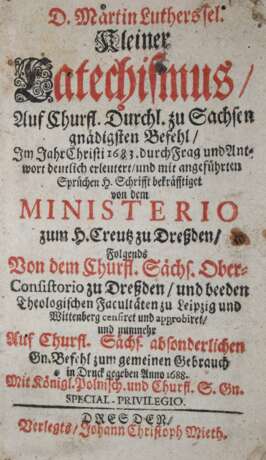 D. Martin Luthers sel.
Kleiner
Catechismus/
Auf Churfl. Durchl. zu Sachsen
gnädigsten Befehl/
Im Jahr Christi 1683. durch Frag und Ant-
wort deutlich erleutert/ und mit angeführten
Sprüchen H. Schrifft bekräfftiget
von dem
MINISTERIO
zum H. Creutz zu Dreßden/
Folgends
Von dem Churfl. Sächs. Ober-
Consistorio zu Dreßden/ und beeden
Theologischen Facultäten zu Leipzig und
Wittenberg censiret und approbiret/
und nunmehr
Auf Churfl. Sächs. absonderlichen
Gn. Befehl zum gemeinen Gebrauch
in Druck gegeben Anno 1688.
Mit Königl. Polnisch. und Churfl. S. Gn.
SPECIAL-PRIVILEGIO.
DRESDEN/
Verlegts/ Johann Christoph Mieth.